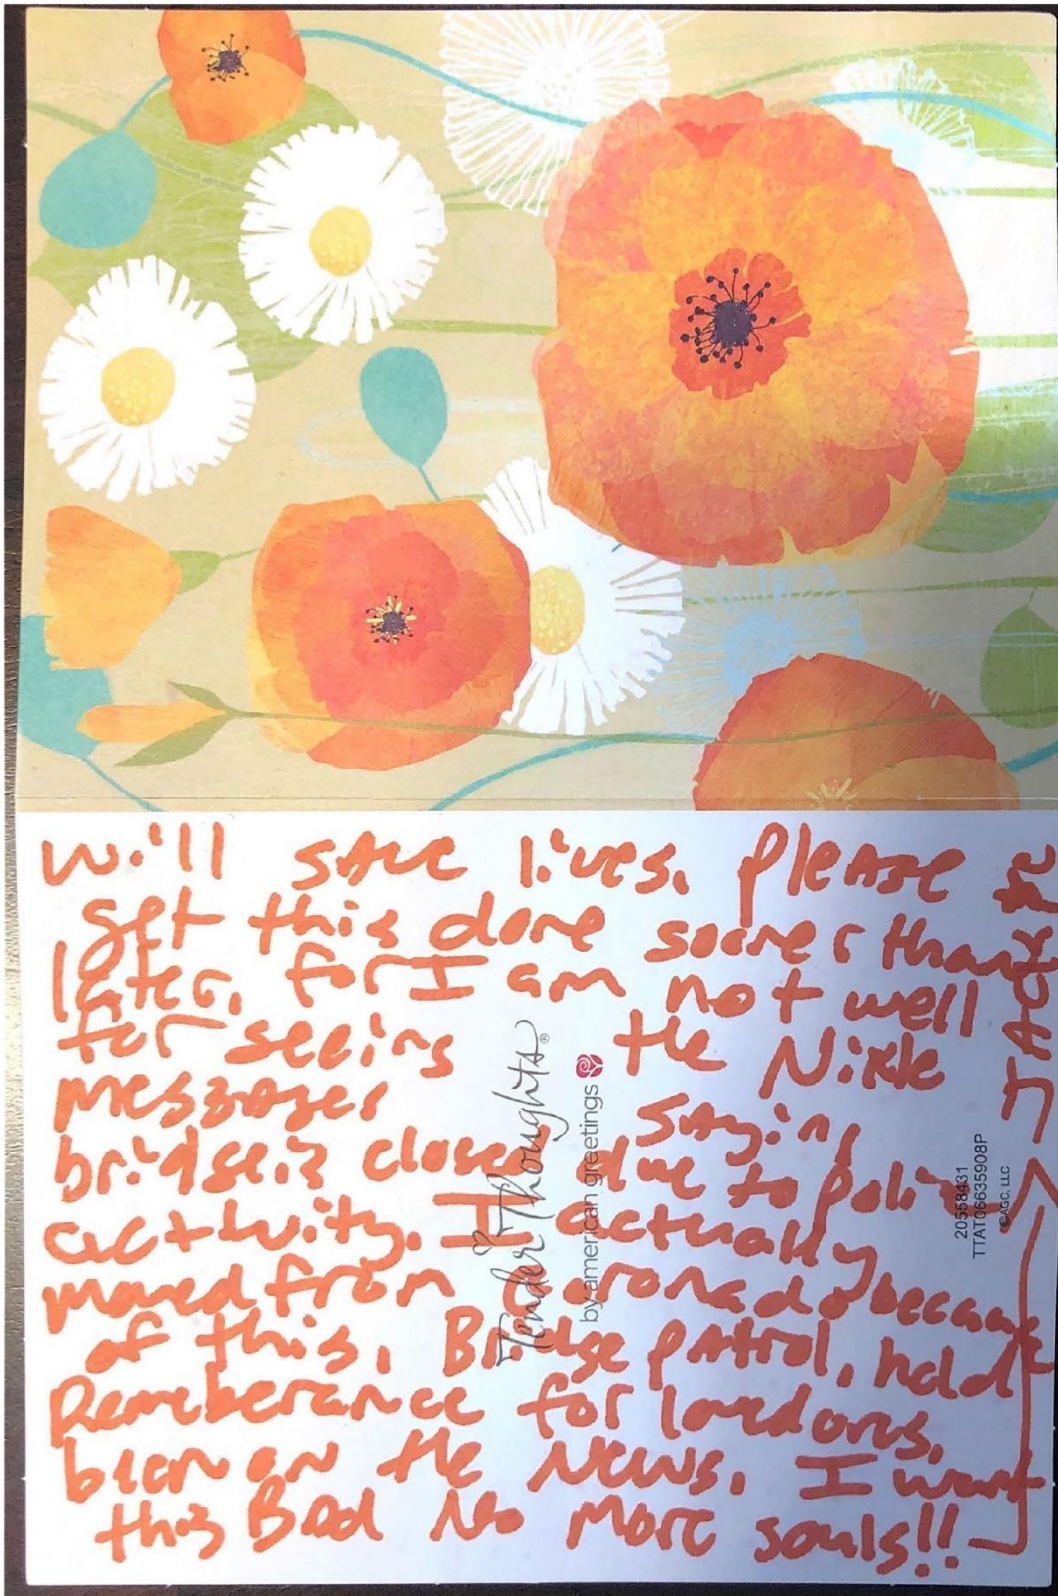 will save lives. please
get this done sooner than
later, for I am not well
for seeing the Nixle
messages saying
bridge is closed due to
activity. I actually
moved from Coronado because
of this, Bridge patrol, held
Remeberance for loved ones,
been on the News. I want
this Bad No More souls!!
Tender Thoughts®
by american greetings
20558431
TTAT06635908P
©AGC, LLC